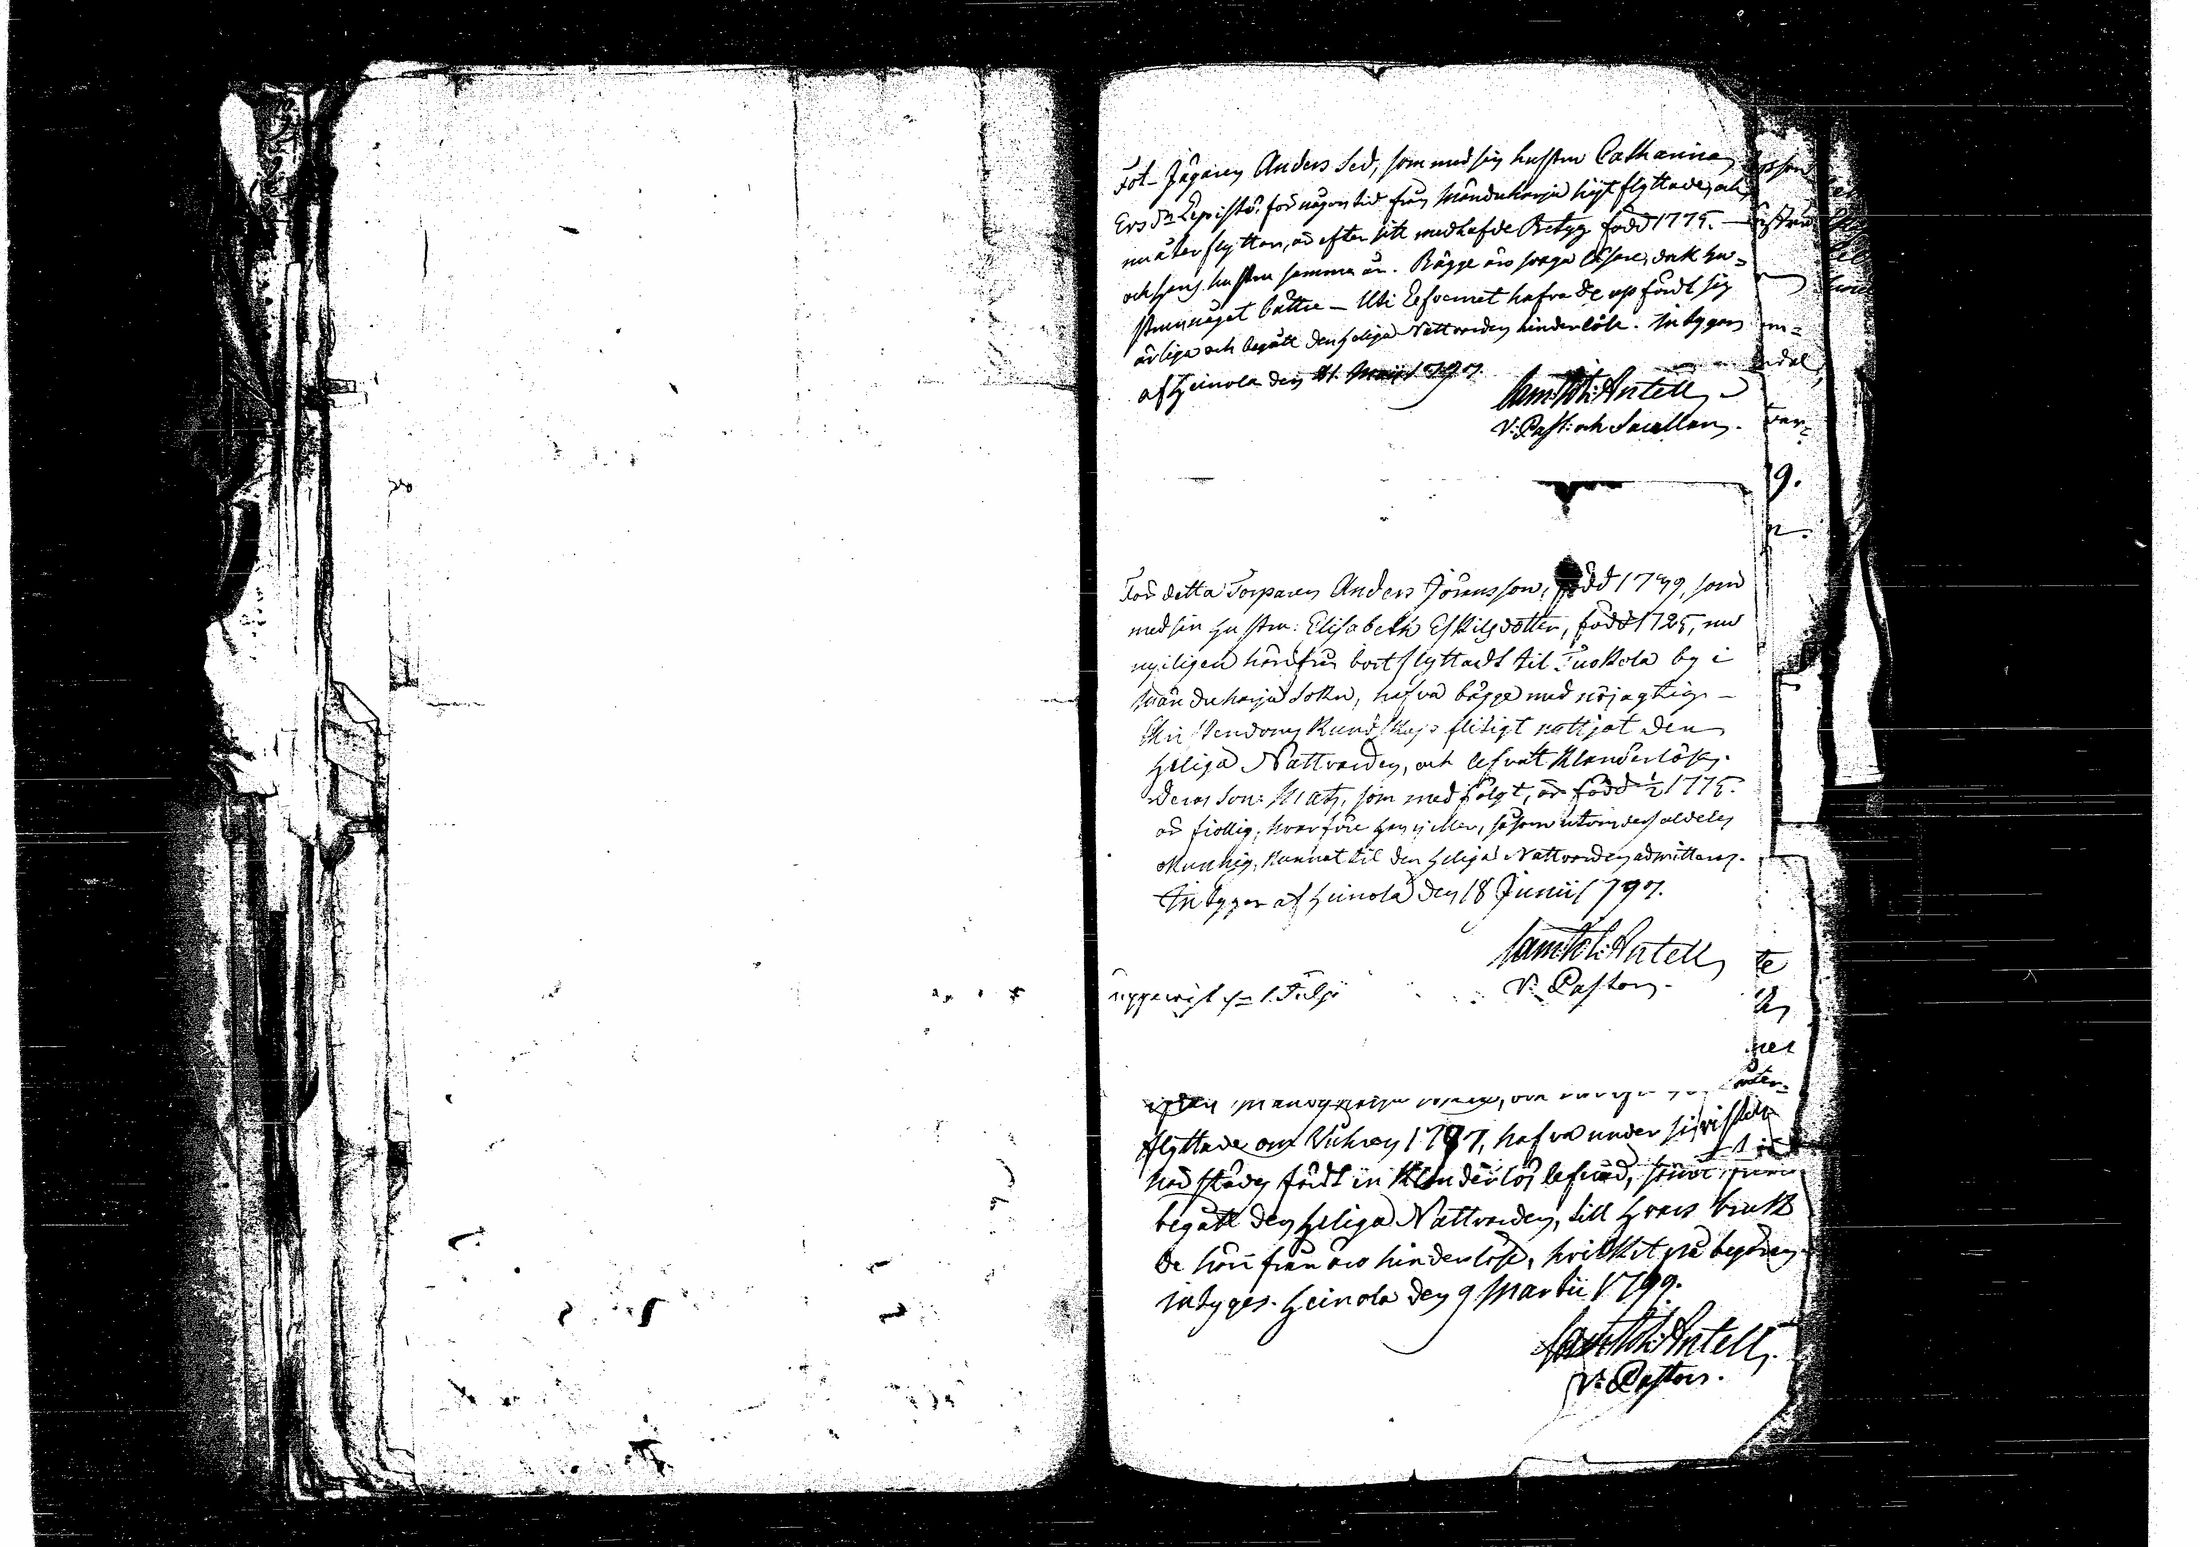 Fot-Jägaren Anders Led, som med sin hustru Catharina
Ersd:r Lepistö för någon tid från Mänduharju hijt flyttade, och
nu åter flyttar, är efter sitt medhafde Betyg född 1775.
och hans hustru samma år. Bägge äro svaga läsare, dock hu-
strun något bättre – Uti Lefvernet hafva de upfördt sig
ärliga och begått den heliga Nattvarden hinderlöse. Intygar
af Heinola den 21. Maii 1797.
Sam: Joh: Antell
V: Past: och Sacellan.
För detta Torparen Anders Jöransson, född 1739, som
med sin hustru: Elisabeth Eskilsdotter, född 1725, nu
nyligen härifrån bortflyttadt til Tuokola by i
Mänduharju Sokn, hafva bägge med nöjagtig
Christendoms Kundskap flitigt nyttjat den
Heliga Nattvarden, och lefvat Klanderlöse.
Deras Son: Mats, som med följt, är född 1/2 1775.
är fiollig, hvarföre han ej eller, såsom utom dess aldeles
okunnig, kunnat til den Heliga Nattvarden admitteras.
Intygar af Heinola den 18 Junii 1797.
Sam: Joh: Antell
V: Pastor.
uppvist d= 1. Julji
flyttade om Våhren 1797, hafva under sin vistelse
här städes fördt en Klanderlös lefnad, samt
begått den Heliga Nattvarden, till hvars bruk
de här ifrån äro hinderlöse, hvilket på begäran
intyges. Heinola den 9 Martii 1799.
Sam: Joh: Antell
V: Pastor.